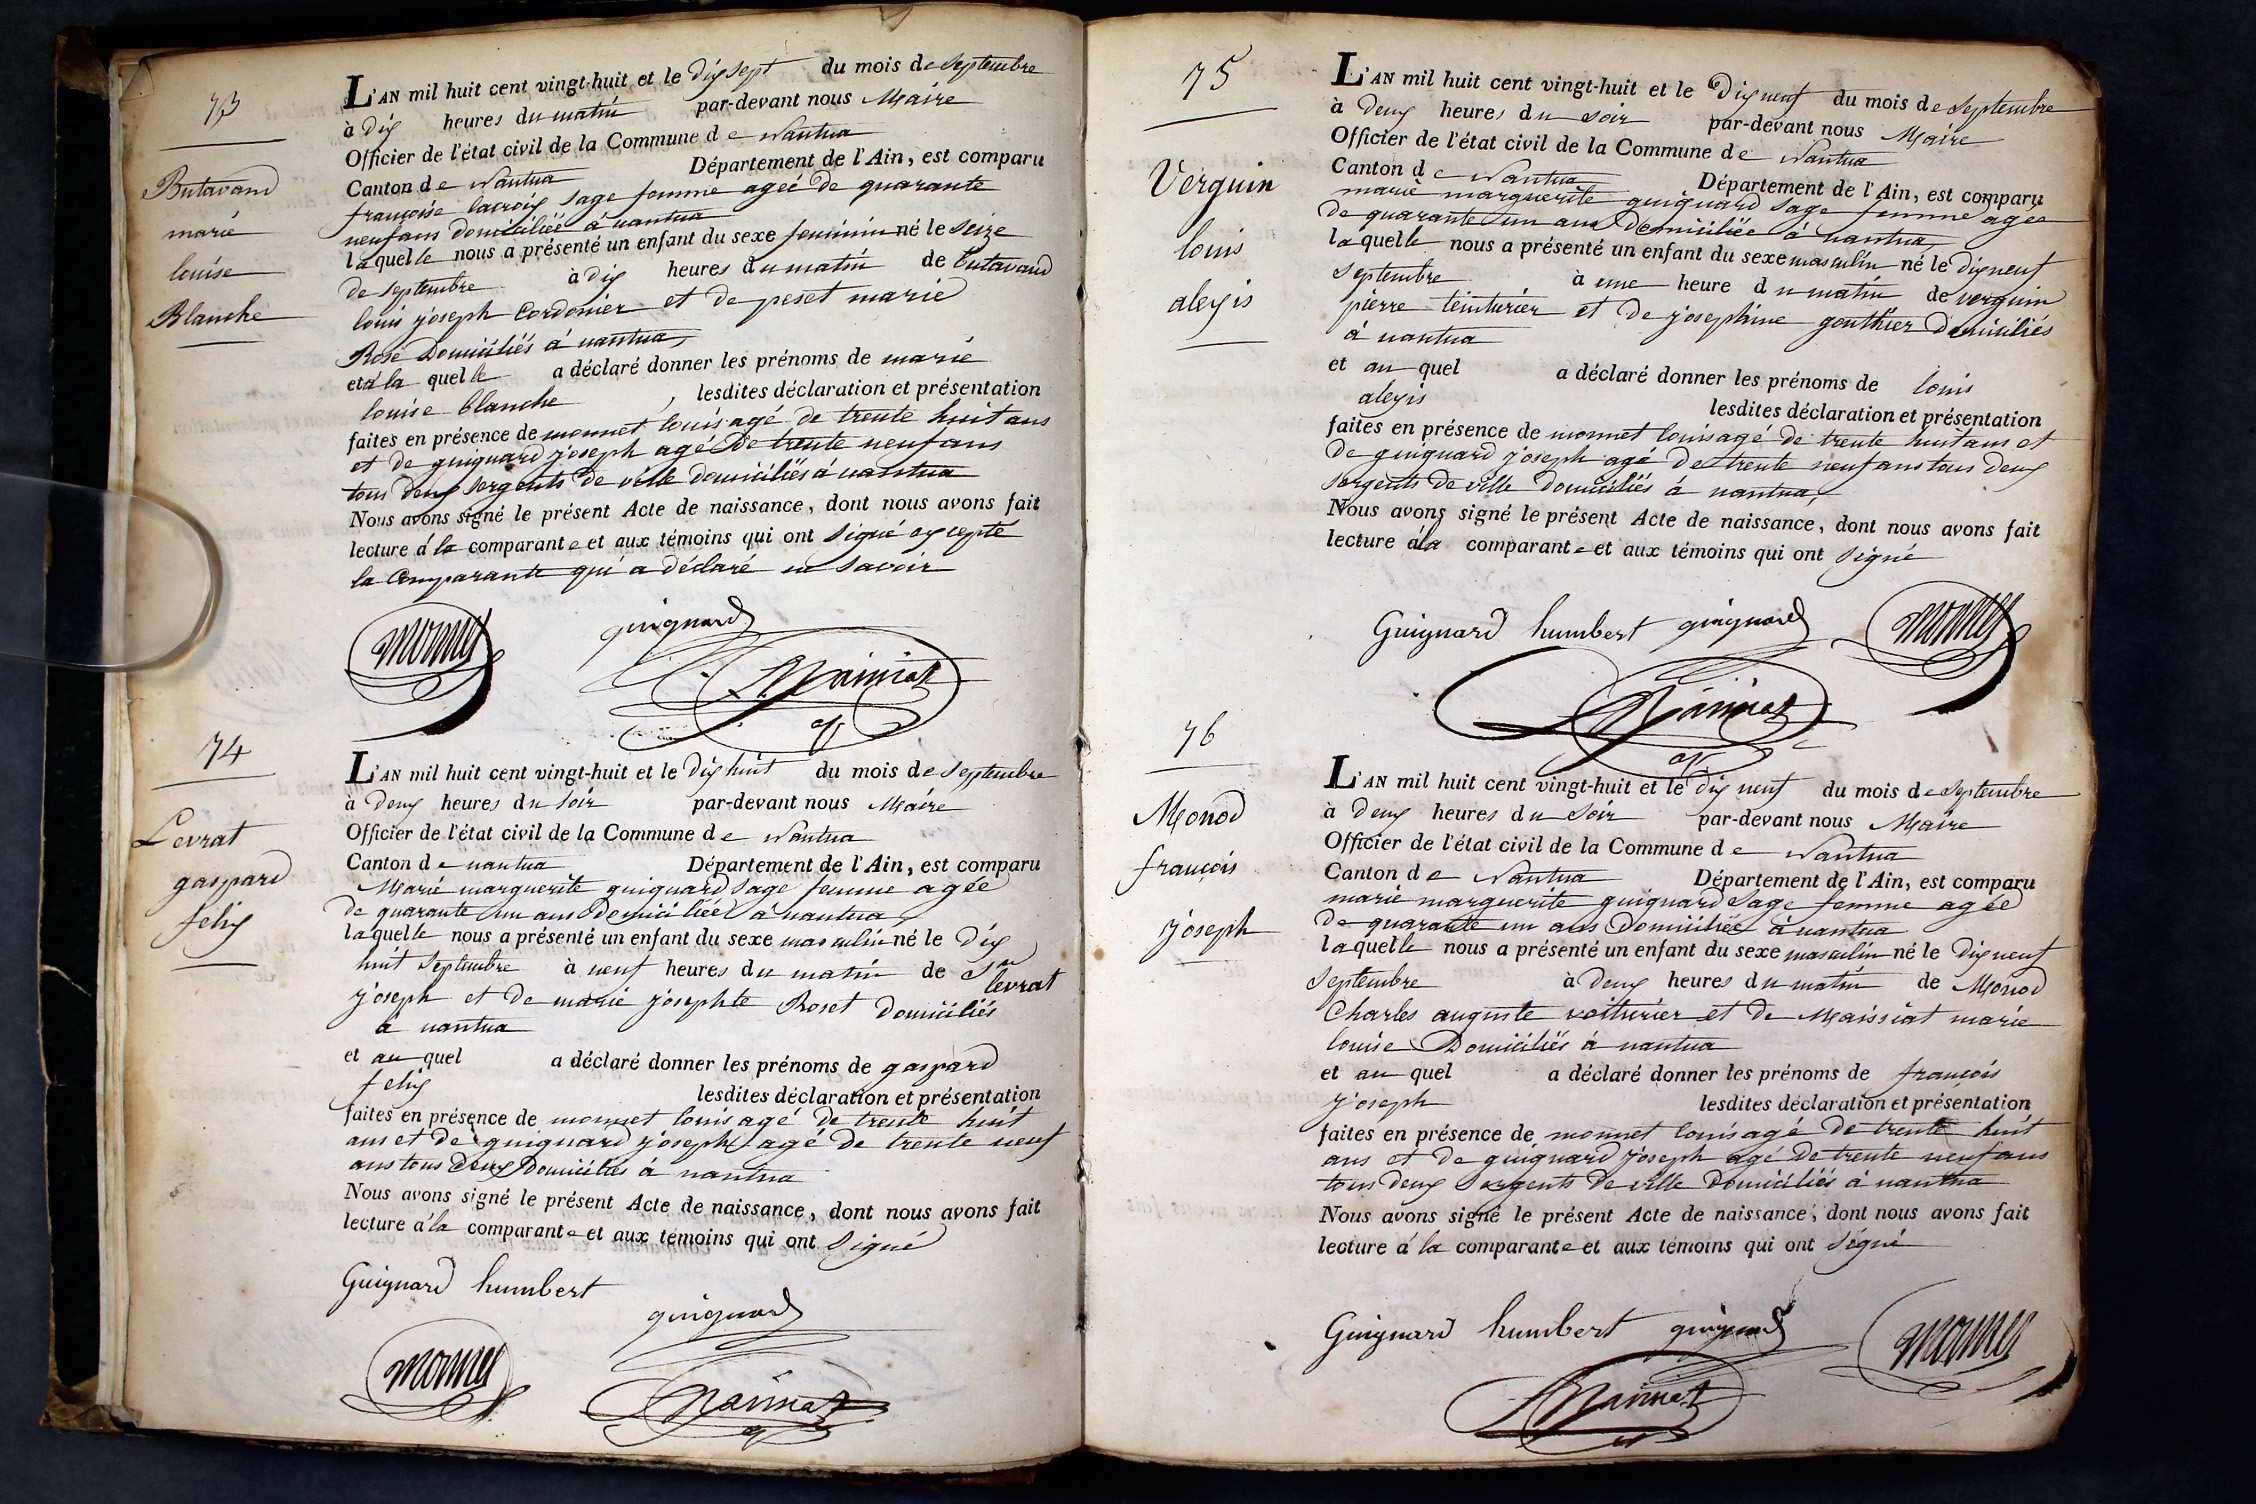 73
Butavand
marie
louise
Blanche
L'AN mil huit cent vingt-huit et le dix sept du mois de septembre
à dix heures du matin par-devant nous Maire
Officier de l'état civil de la Commune de Nantua
Canton de Nantua Département de l'Ain, est comparu
françoise lacroix sage femme agée de quarante
neuf ans domiciliée à nantua
laquelle nous a présenté un enfant du sexe feminin né le seize
de septembre à dix heures du matin de butavand
louis joseph Cordonier et de peset marie
Rose Domiciliés à nantua,
et à la quelle a déclaré donner les prénoms de marie
louise blanche , lesdites déclaration et présentation
faites en présence de monnet louis agé de trente huit ans
et de guignard joseph agé De trente neuf ans
tous deux sergents de ville domiciliés à nantua
Nous avons signé le présent Acte de naissance, dont nous avons fait
lecture à la comparante et aux témoins qui ont signé excepté
la Comparante qui a déclaré ne savoir
monnet guignard
74
Levrat
gaspard
felix
L'AN mil huit cent vingt-huit et le dix huit du mois de septembre
à deux heures du soir par-devant nous Maire
Officier de l'état civil de la Commune de Nantua
Canton de nantua Département de l'Ain, est comparu
Marie marguerite guignard sage femme agée
de quarante un ans Domiciliée à nantua,
laquelle nous a présenté un enfant du sexe masculin né le dix
huit septembre à neuf heures du matin de Sr levrat
joseph et de marie josephte Roset domiciliés
à nantua
et au quel a déclaré donner les prénoms de gaspard
felix lesdites déclaration et présentation
faites en présence de monnet louis agé de trente huit
ans et de guignard joseph agé de trente neuf
ans tous deux Domiciliés à nantua
Nous avons signé le présent Acte de naissance, dont nous avons fait
lecture à la comparante et aux témoins qui ont signé
Guignard humbert
guignard
monnet
75
Verguin
louis
alexis
L'AN mil huit cent vingt-huit et le Dix neuf du mois de septembre
à deux heures du soir par-devant nous Maire
Officier de l'état civil de la Commune de Nantua
Canton de Nantua Département de l'Ain, est comparu
marie marguerite guignard sage femme agée
de quarante un ans Domiciliée à nantua,
laquelle nous a présenté un enfant du sexe masculin né le dix neuf
septembre à une heure du matin de verguin
pierre teinturier et de josephine gouthier domiciliés
à nantua
et au quel a déclaré donner les prénoms de louis
alexis lesdites déclaration et présentation
faites en présence de monnet louis agé de trente huit ans et
de guignard joseph agé de trente neuf ans tous deux
sergents de ville domiciliés à nantua,
Nous avons signé le présent Acte de naissance, dont nous avons fait
lecture à la comparante et aux témoins qui ont signé
Guignard humbert guignard monnet
76
Monod
françois
joseph
L'AN mil huit cent vingt-huit et le dix neuf du mois de septembre
à deux heures du soir par-devant nous Maire
Officier de l'état civil de la Commune de Nantua
Canton de Nantua Département de l'Ain, est comparu
marie marguerite guignard sage femme agée
de quarante un ans Domiciliée à nantua
laquelle nous a présenté un enfant du sexe masculin né le dix neuf
septembre à deux heures du matin de Monod
Charles auguste voiturier et de Maissiat marie
louise Domiciliés à nantua
et au quel a déclaré donner les prénoms de françois
joseph lesdites déclaration et présentation
faites en présence de monnet louis agé de trente huit
ans et de guignard joseph agé de trente neuf ans
tous deux sergents de ville domiciliés à nantua
Nous avons signé le présent Acte de naissance, dont nous avons fait
lecture à la comparante et aux témoins qui ont signé
Guignard humbert guignard monnet